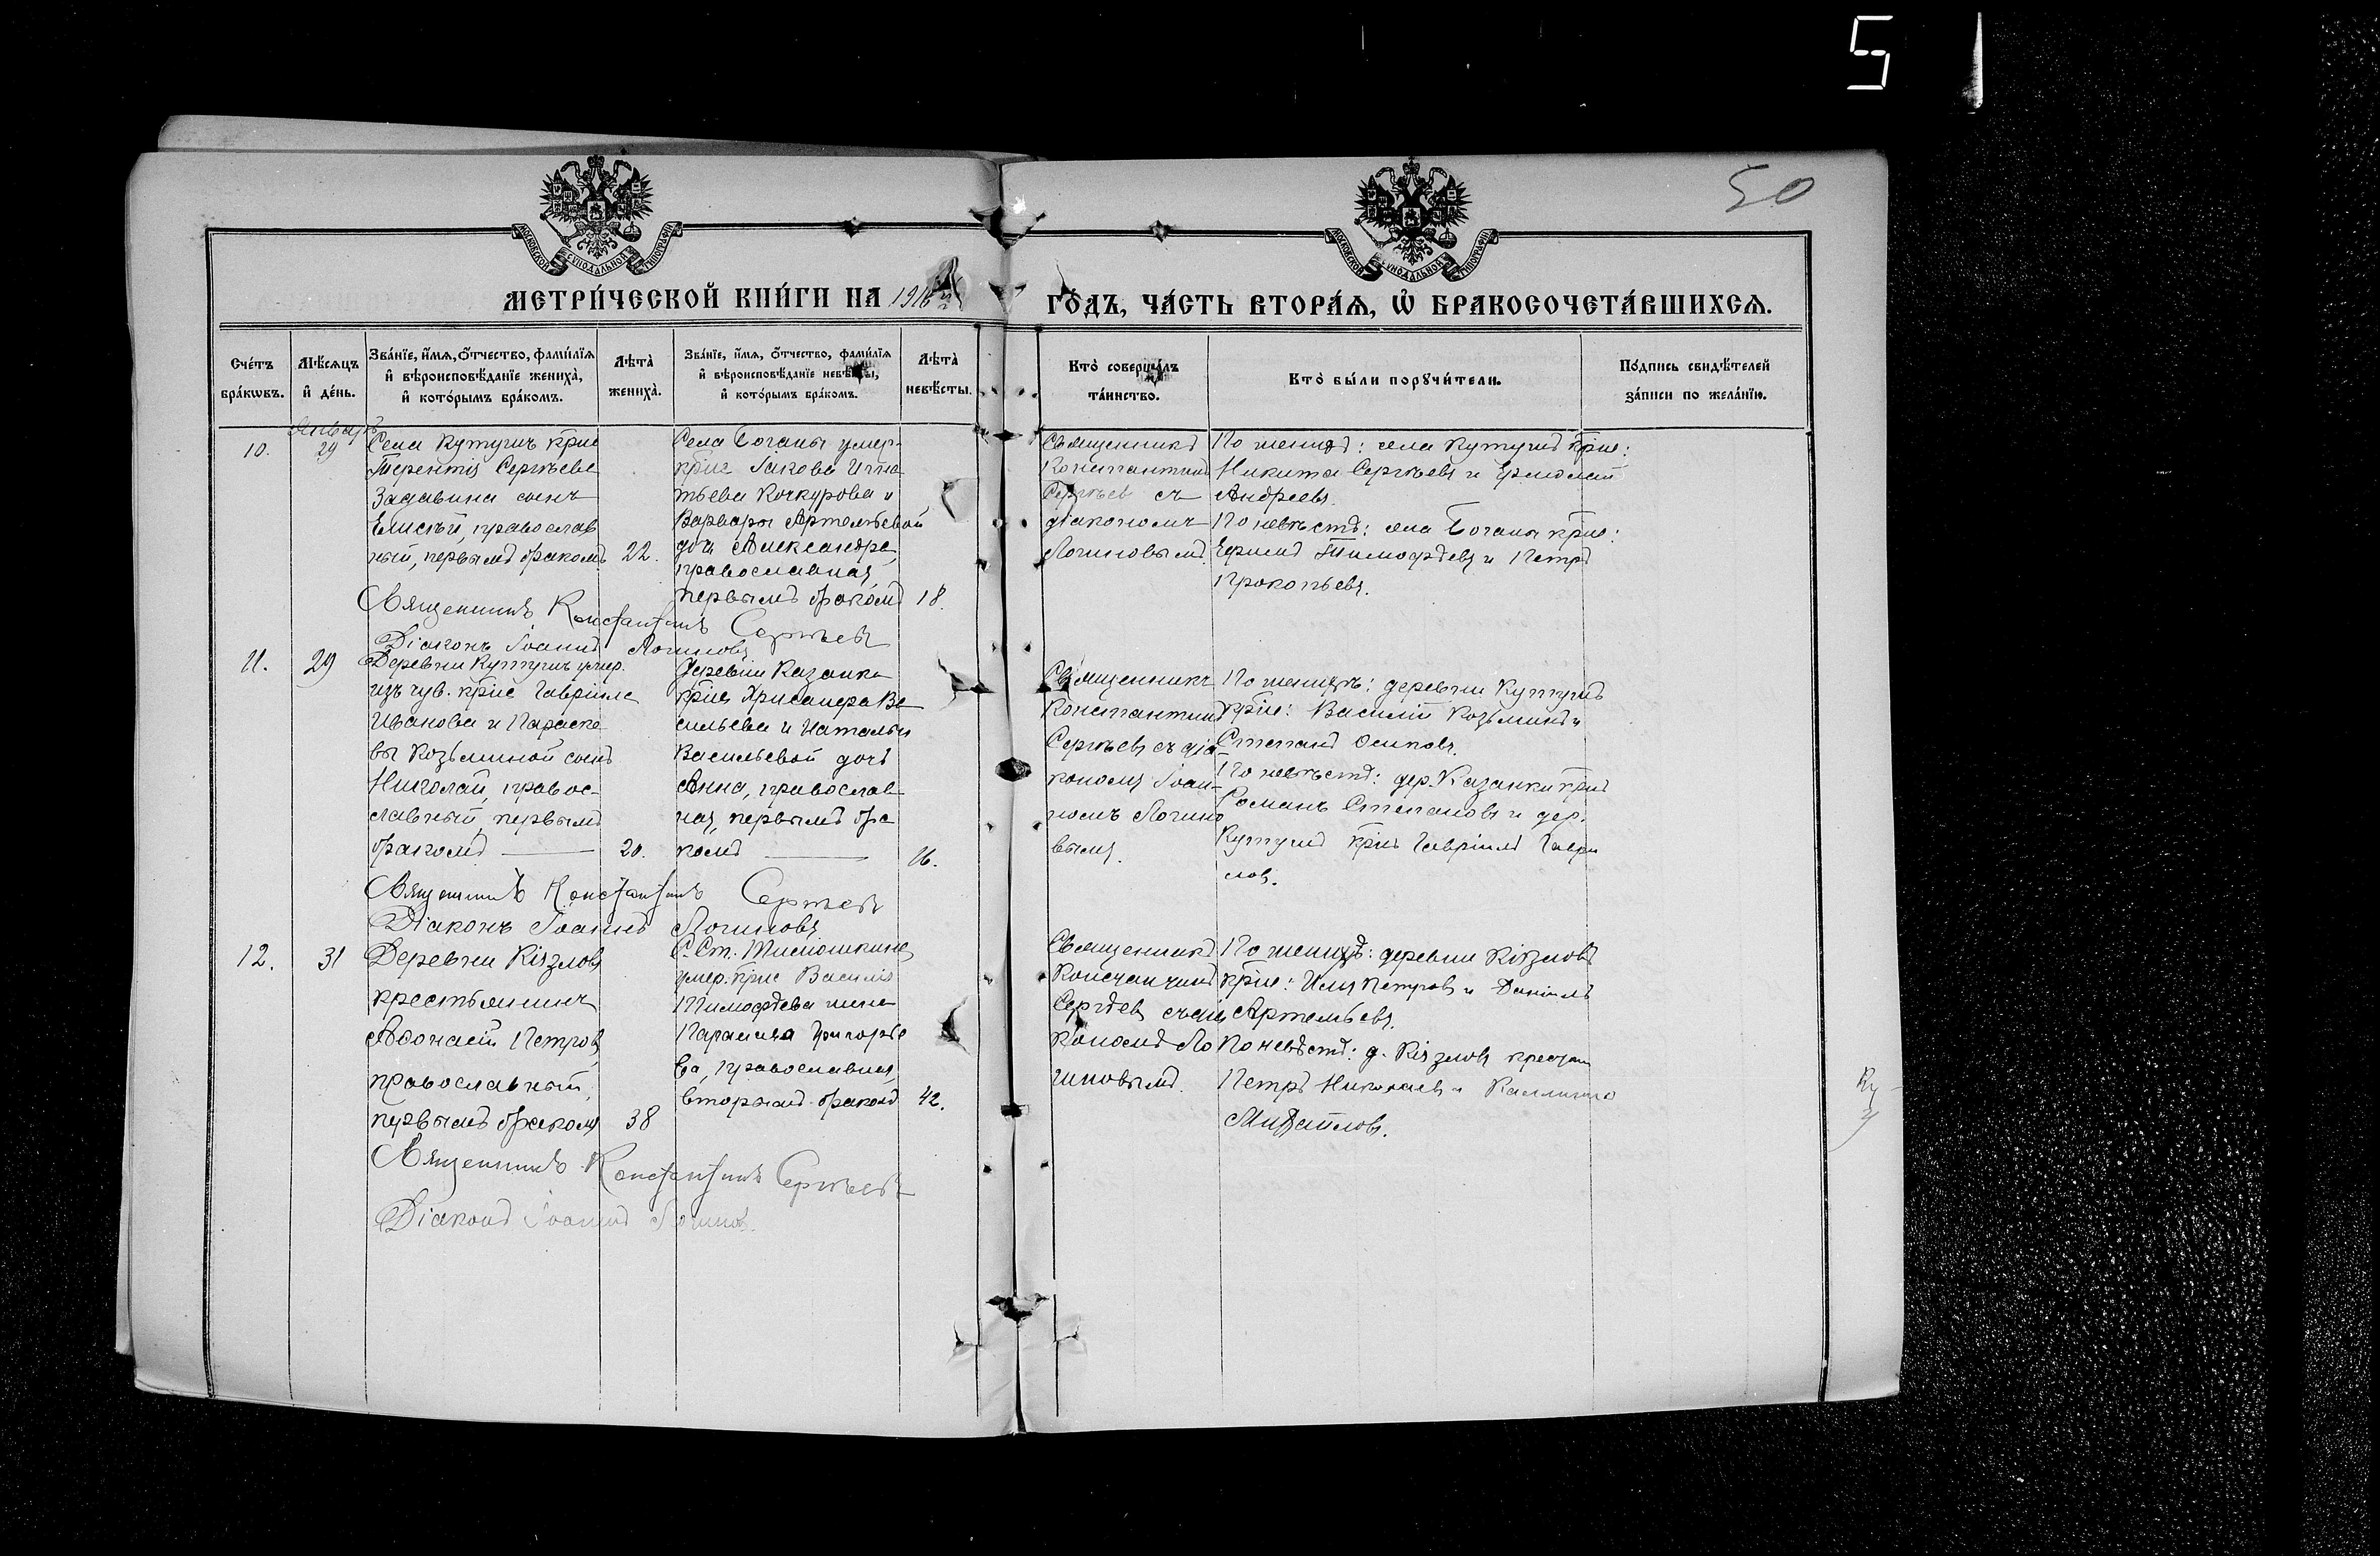 5
50
МОСКОВСКОЙ СѴНОДАЛЬНОЙ ТИПОГРАФІИ
МОСКОВСКОЙ СѴНОДАЛЬНОЙ ТИПОГРАФІИ
МЕТРИ́ЧЕСКОЙ КНИ́ГИ НА 1916
ГО́ДЪ, ЧА́СТЬ ВТОРА́Я, Ѡ҆ БРАКОСОЧЕТА́ВШИХСЯ.
Сче́тъ бра́кѡвъ.
Мѣ́сяцъ и҆ де́нь.
Зва́нїе, и҆́мя, ѻ҆́тчество, фами́лїя
и҆ вѣроисповѣ́данїе жениха̀,
и҆ кото́рымъ бра́комъ.
Лѣта̀ жениха̀.
Зва́нїе, и҆́мя, ѻ҆́тчество, фами́лїя
и҆ вѣроисповѣ́данїе невѣ́сты,
и҆ кото́рымъ бра́комъ.
Лѣта̀ невѣ́сты.
Кто̀ соверша́лъ та́инство.
Кто̀ бы́ли порꙋчи́тели.
По́дпись свидѣ́телей
за́писи по жела́нїю.
10.
Январь
29
Села Кутушъ крне
Терентія Сергѣева
Задавина сынъ
Елисѣй, православ
ный, первымъ бракомъ
22.
Села Боганы умер.
крне Іакова Игна
тьева Кочкурова и
Варвары Артемьевой
дочь Александра,
православная,
первымъ бракомъ
18.
Священникъ
Константинъ
Сергѣев съ
діакономъ
Логиновымъ.
По женихѣ: села Кутушъ крне:
Никита Сергѣевъ и Ермолай
Андреевъ.
По невѣстѣ: села Боганы крне:
Ефимъ Тимофѣевъ и Петръ
Прокопьевъ.
Священникъ Константинъ Сергѣевъ
Діаконъ Іоаннъ Логиновъ
11.
29
Деревни Кутушъ умер.
изъ чув. крне Гавріила
Иванова и Параске
вы Козьминой сынъ
Николай, правос-
лавный, первымъ
бракомъ
20.
Деревни Казанки
крне Хрисанфа Ва
сильева и Натальи
Васильевой дочь
Анна, православ
ная, первымъ бра
комъ
16.
Священникъ
Константинъ
Сергѣевъ съ діа
кономъ Іоан-
номъ Логино
вымъ.
По женихѣ: деревни Кутушъ
крне: Василій Козьминъ и
Степанъ Осиповъ.
По невѣстѣ: дер. Казанки крне
Романъ Степановъ и дер.
Кутушъ крне Гавріилъ Гаври
лов.
Священникъ Константинъ Сергѣевъ
Діаконъ Іоаннъ Логиновъ
12.
31
Деревни
крестьянинъ
Афонасій Петровъ,
православный,
первымъ бракомъ
38
умер. крне Василія
Тимофѣева жена
Параскева Григорье
ва, православная,
вторымъ бракомъ
42.
Священникъ
Константинъ
Сергѣевъ съ діа
кономъ Ло
гиновымъ.
По женихѣ: деревни
крне: Илья Петров и Даніилъ
Артемьевъ.
По невѣстѣ: д.
Петръ Николаевъ и
Михайлов.
Священникъ Константинъ Сергѣевъ
Діаконъ Іоаннъ Логинов.